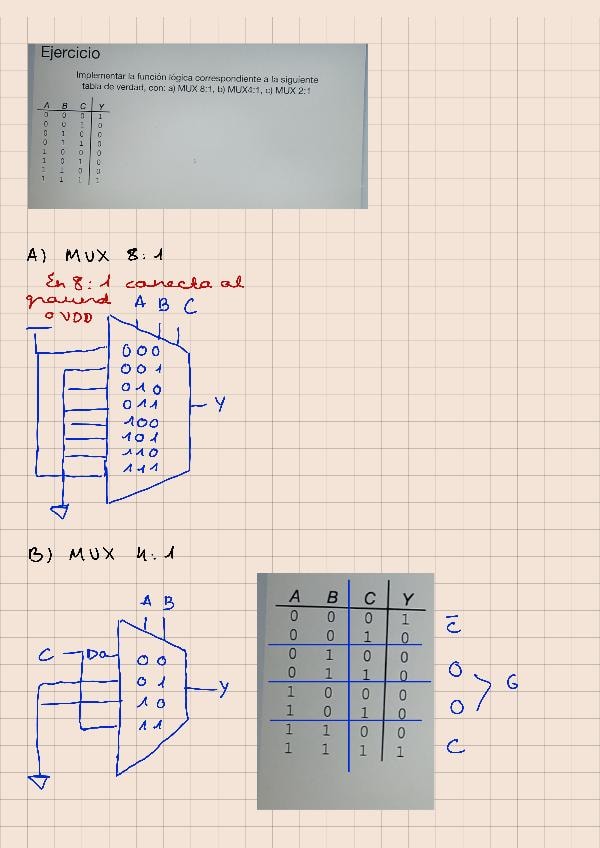 Ejercicio
Implementar la función lógica correspondiente a la siguiente
tabla de verdad, con: a) MUX 8:1, b) MUX4:1, c) MUX 2:1
A B C Y
0 0 0 1
0 0 1 0
0 1 0 0
0 1 1 0
1 0 0 0
1 0 1 0
1 1 0 0
1 1 1 1
A) MUX 8:1
En 8:1 conecta al
ground
o VDD
A B C
000
001
010
011
100
101
110
111
Y
B) MUX 4:1
A B
C
00
01
10
11
Y
A B C Y
0 0 0 1
0 0 1 0
0 1 0 0
0 1 1 0
1 0 0 0
1 0 1 0
1 1 0 0
1 1 1 1
C̅
0
0
G
C